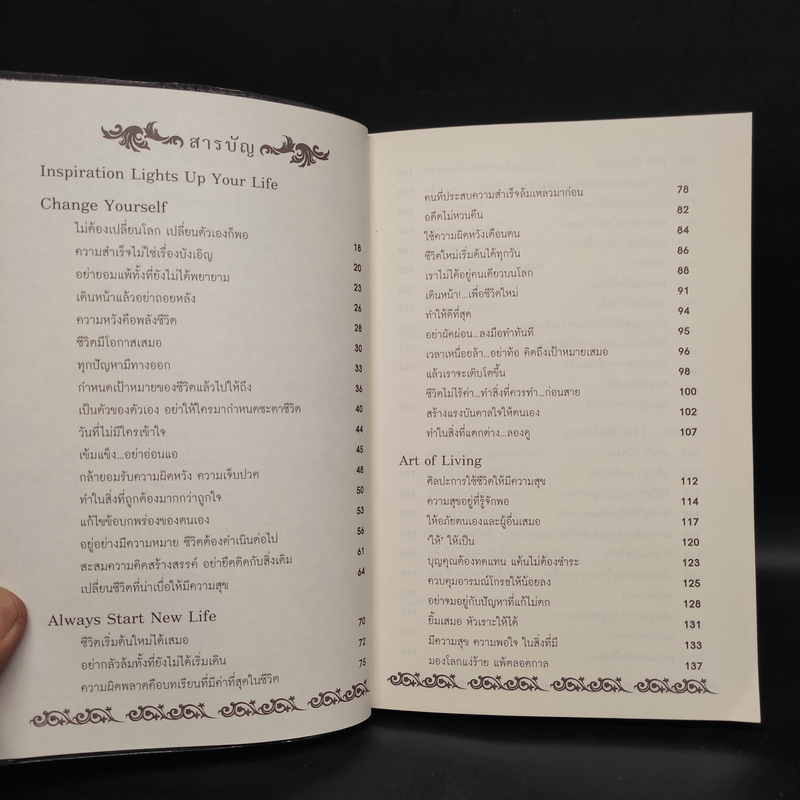 สารบัญ
Inspiration Lights Up Your Life
Change Yourself
ไม่ต้องเปลี่ยนโลก เปลี่ยนตัวเองก็พอ 18
ความสำเร็จไม่ใช่เรื่องบังเอิญ 20
อย่ายอมแพ้ทั้งที่ยังไม่ได้พยายาม 23
เดินหน้าแล้วอย่าถอยหลัง 26
ความหวังคือพลังชีวิต 28
ชีวิตมีโอกาสเสมอ 30
ทุกปัญหามีทางออก 33
กำหนดเป้าหมายของชีวิตแล้วไปให้ถึง 36
เป็นตัวของตัวเอง อย่าให้ใครมากำหนดชะตาชีวิต 40
วันที่ไม่มีใครเข้าใจ 44
เข้มแข็ง...อย่าอ่อนแอ 45
กล้ายอมรับความผิดหวัง ความเจ็บปวด 48
ทำในสิ่งที่ถูกต้องมากกว่าถูกใจ 50
แก้ไขข้อบกพร่องของตนเอง 53
อยู่อย่างมีความหมาย ชีวิตต้องดำเนินต่อไป 56
สะสมความคิดสร้างสรรค์ อย่ายึดติดกับสิ่งเดิม 61
เปลี่ยนชีวิตที่น่าเบื่อให้มีความสุข 64
Always Start New Life
ชีวิตเริ่มต้นใหม่ได้เสมอ 70
อย่ากลัวล้มทั้งที่ยังไม่ได้เริ่มเดิน 72
ความผิดพลาดคือบทเรียนที่มีค่าที่สุดในชีวิต 75
คนที่ประสบความสำเร็จล้มเหลวมาก่อน 78
อดีตไม่หวนคืน 82
ใช้ความผิดหวังเตือนตน 84
ชีวิตใหม่เริ่มต้นได้ทุกวัน 86
เราไม่ได้อยู่คนเดียวบนโลก 88
เดินหน้า!...เพื่อชีวิตใหม่ 91
ทำให้ดีที่สุด 94
อย่าผัดผ่อน...ลงมือทำทันที 95
เวลาเหนื่อยล้า...อย่าท้อ คิดถึงเป้าหมายเสมอ 96
แล้วเราจะเติบโตขึ้น 98
ชีวิตไม่ไร้ค่า...ทำสิ่งที่ควรทำ...ก่อนสาย 100
สร้างแรงบันดาลใจให้ตนเอง 102
ทำในสิ่งที่แตกต่าง...ลองดู 107
Art of Living
ศิลปะการใช้ชีวิตให้มีความสุข 112
ความสุขอยู่ที่รู้จักพอ 114
ให้อภัยตนเองและผู้อื่นเสมอ 117
'ให้' ให้เป็น 120
บุญคุณต้องทดแทน แค้นไม่ต้องชำระ 123
ควบคุมอารมณ์โกรธให้น้อยลง 125
อย่าจมอยู่กับปัญหาที่แก้ไม่ตก 128
ยิ้มเสมอ หัวเราะให้ได้ 131
มีความสุข ความพอใจ ในสิ่งที่มี 133
มองโลกแง่ร้าย แพ้ตลอดกาล 137